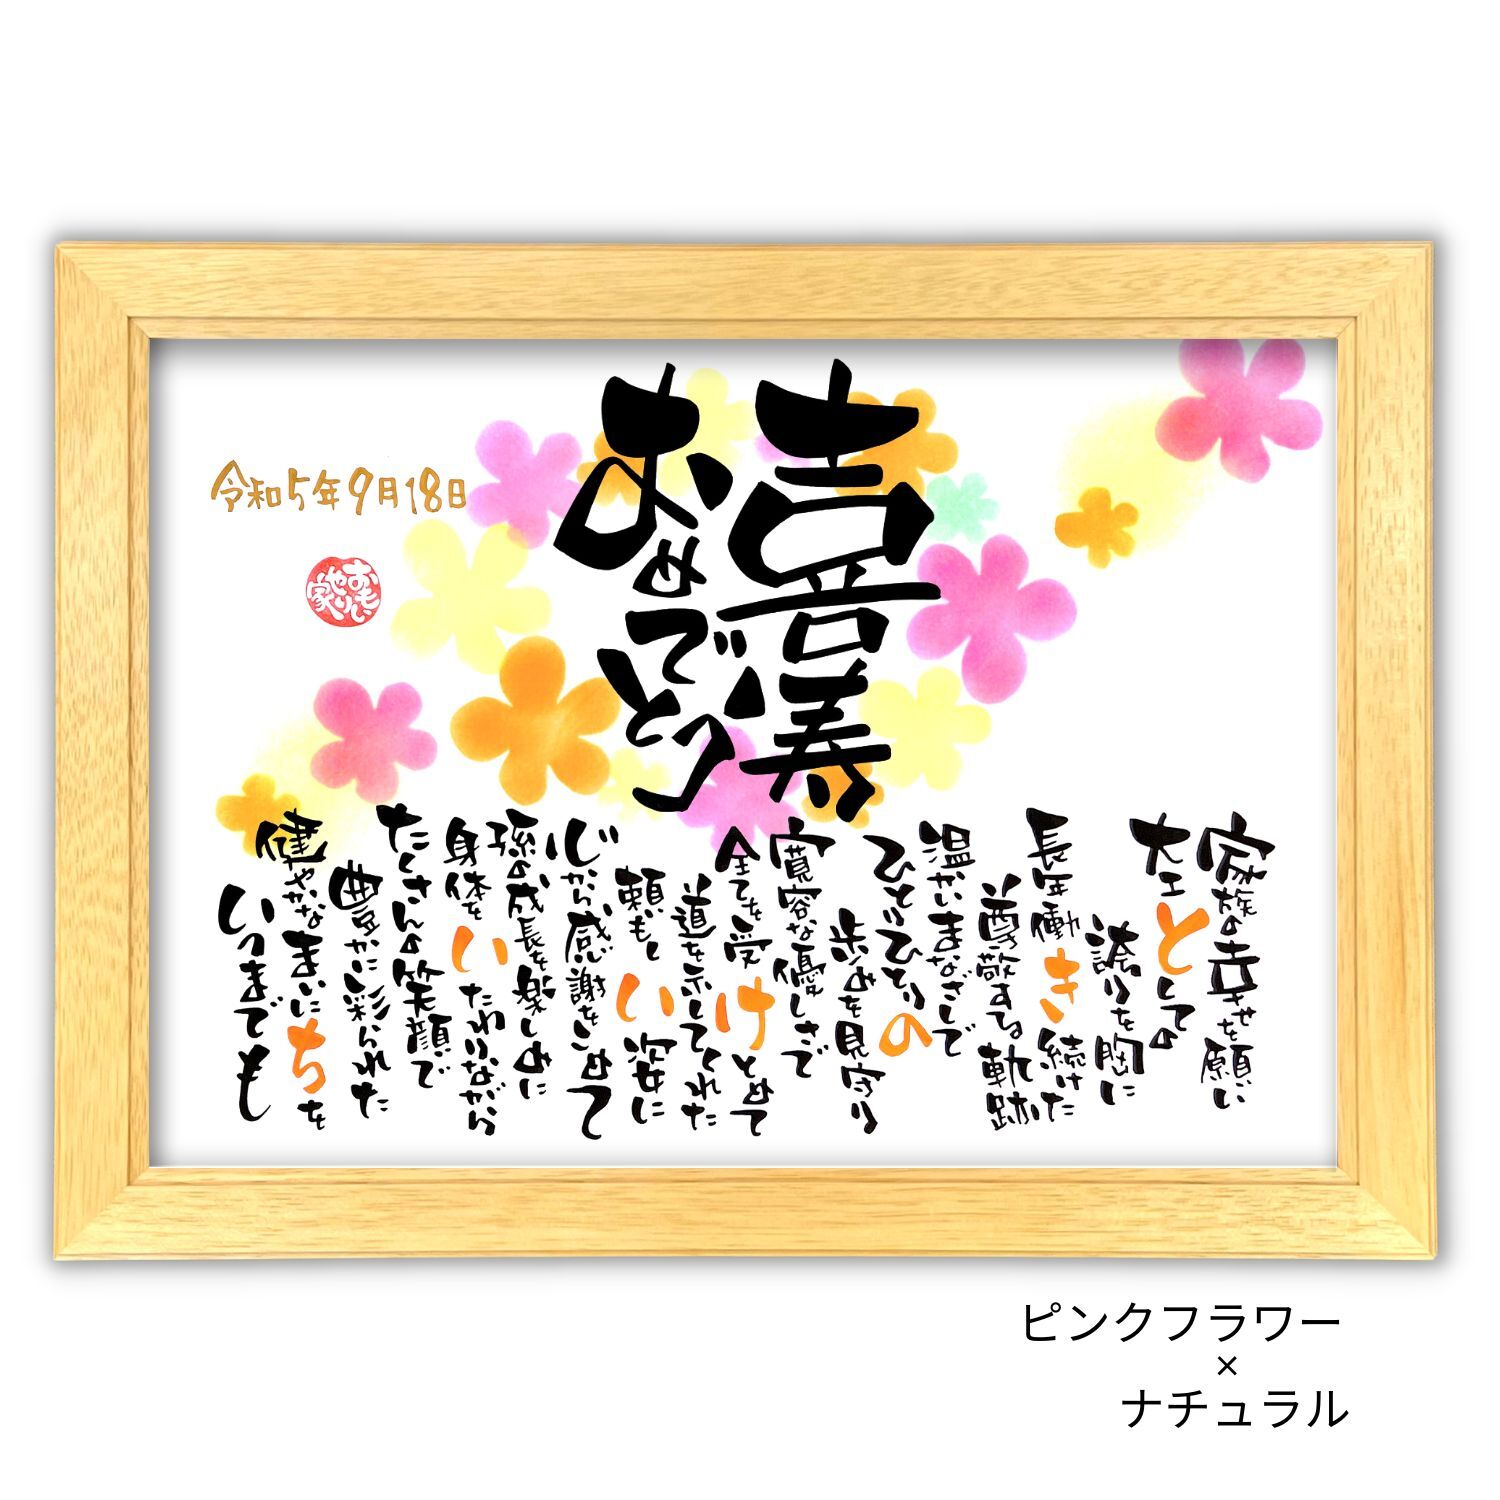 喜寿
おめでとう
令和5年9月18日
おもい
やり
家
家族の幸せを願い
大工としての
誇りを胸に
長年働き続けた
尊敬する軌跡
温かいまなざしで
ひとりひとりの
歩みを見守り
寛容な優しさで
全てを受けとめて
道を示してくれた
頼もしい姿に
心から感謝をこめて
孫の成長を楽しみに
身体をいたわりながら
たくさんの笑顔で
豊かに彩られた
健やかなまいにちを
いつまでも
ピンクフラワー
×
ナチュラル